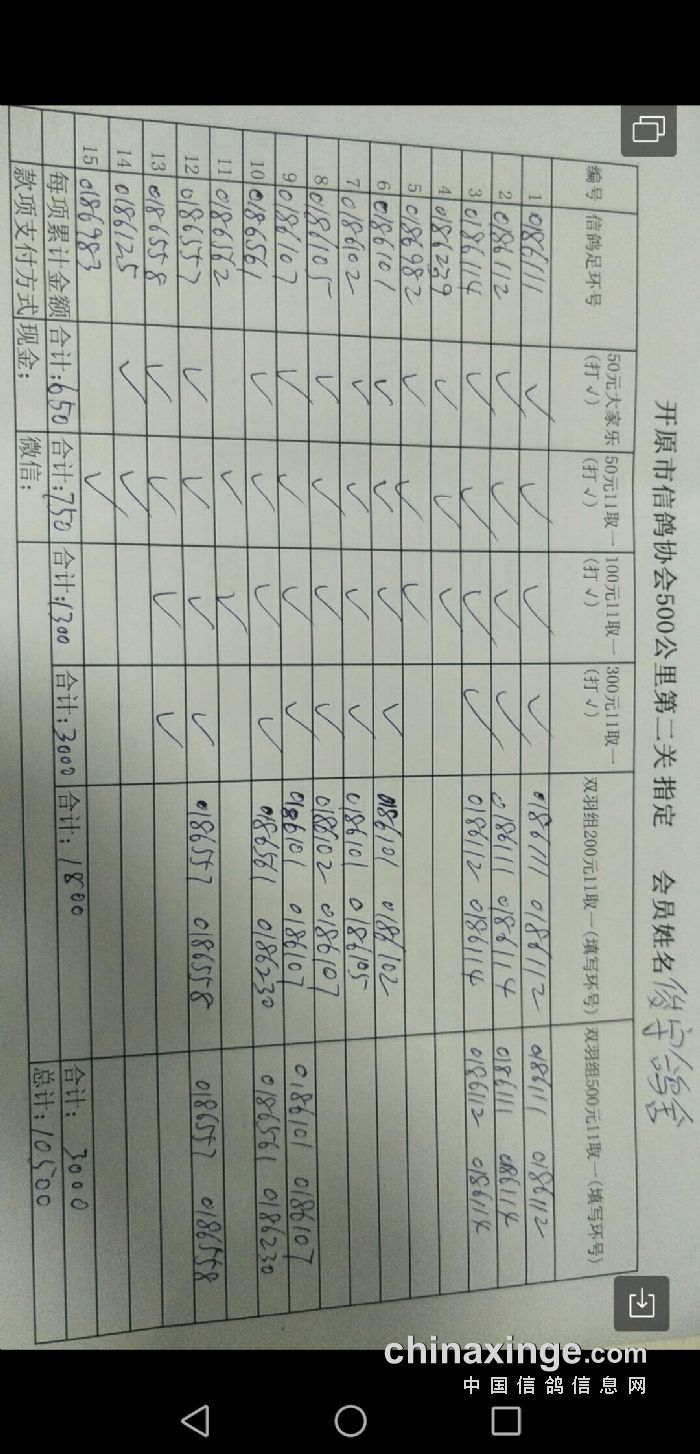 开原市信鸽协会500公里第二关 指定 会员姓名 俊宇鸽舍
编号 信鸽足环号 50元大家乐（打√） 50元11取一（打√） 100元11取一（打√） 300元11取一（打√） 双羽组200元11取一（填写环号） 双羽组500元11取一（填写环号）
1 0186111 √ √ √ √ 0186111 0186112 0186111 0186112
2 0186112 √ √ √ √ 0186111 0186114 0186111 0186114
3 0186114 √ √ √ √ 0186112 0186114 0186112 0186114
4 0186239 √ √ √
5 0186982 √ √ √
6 0186101 √ √ √ √ 0186101 0186102
7 0186102 √ √ √ √ 0186101 0186105
8 0186105 √ √ √ √ 0186102 0186107
9 0186107 √ √ √ √ 0186101 0186107 0186101 0186107
10 0186561 √ √ √ √ 0186561 0186230 0186561 0186230
11 0186562 √ √
12 0186557 √ √ √ √ 0186557 0186558 0186557 0186558
13 0186558 √ √ √ √
14 0186125 √ √
15 0186983 √
每项累计金额 合计：650 合计：750 合计：1300 合计：3000 合计：1800 合计：3000
款项支付方式 现金： 微信： 总计：10500
chinaxinge.com
中国信鸽信息网